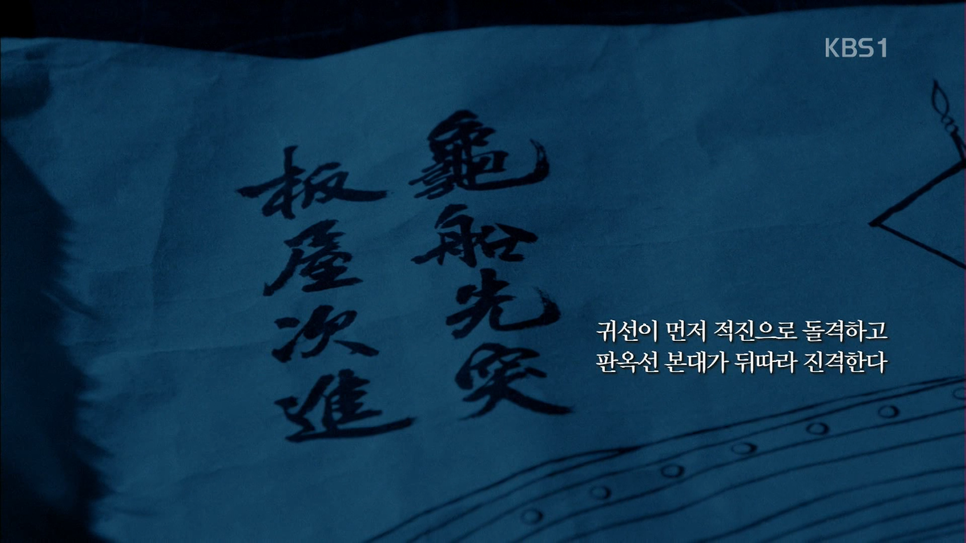 KBS1
龜船先突
板屋次進
귀선이 먼저 적진으로 돌격하고
판옥선 본대가 뒤따라 진격한다